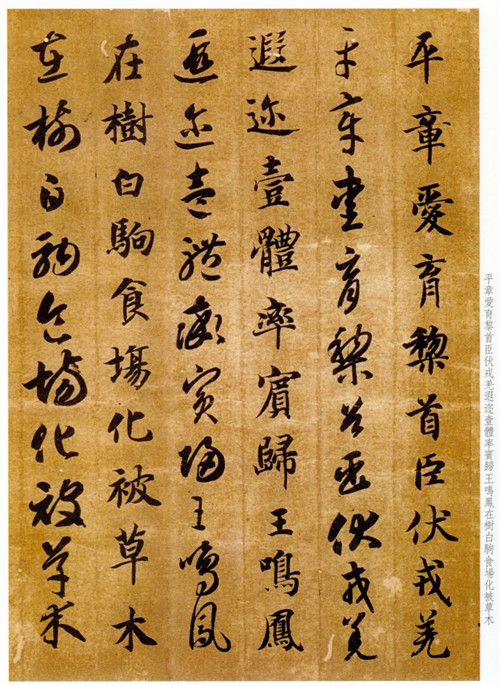 平章愛育黎首臣伏戎羌遐迩壹體率賓歸王鳴鳳在樹白駒食場化被草木
平章愛育黎首臣伏戎羌
平章愛育黎首臣伏戎羌
遐迩壹體率賓歸王鳴鳳
遐迩壹體率賓歸王鳴鳳
在樹白駒食塲化被草木
在樹白駒食場化被草木